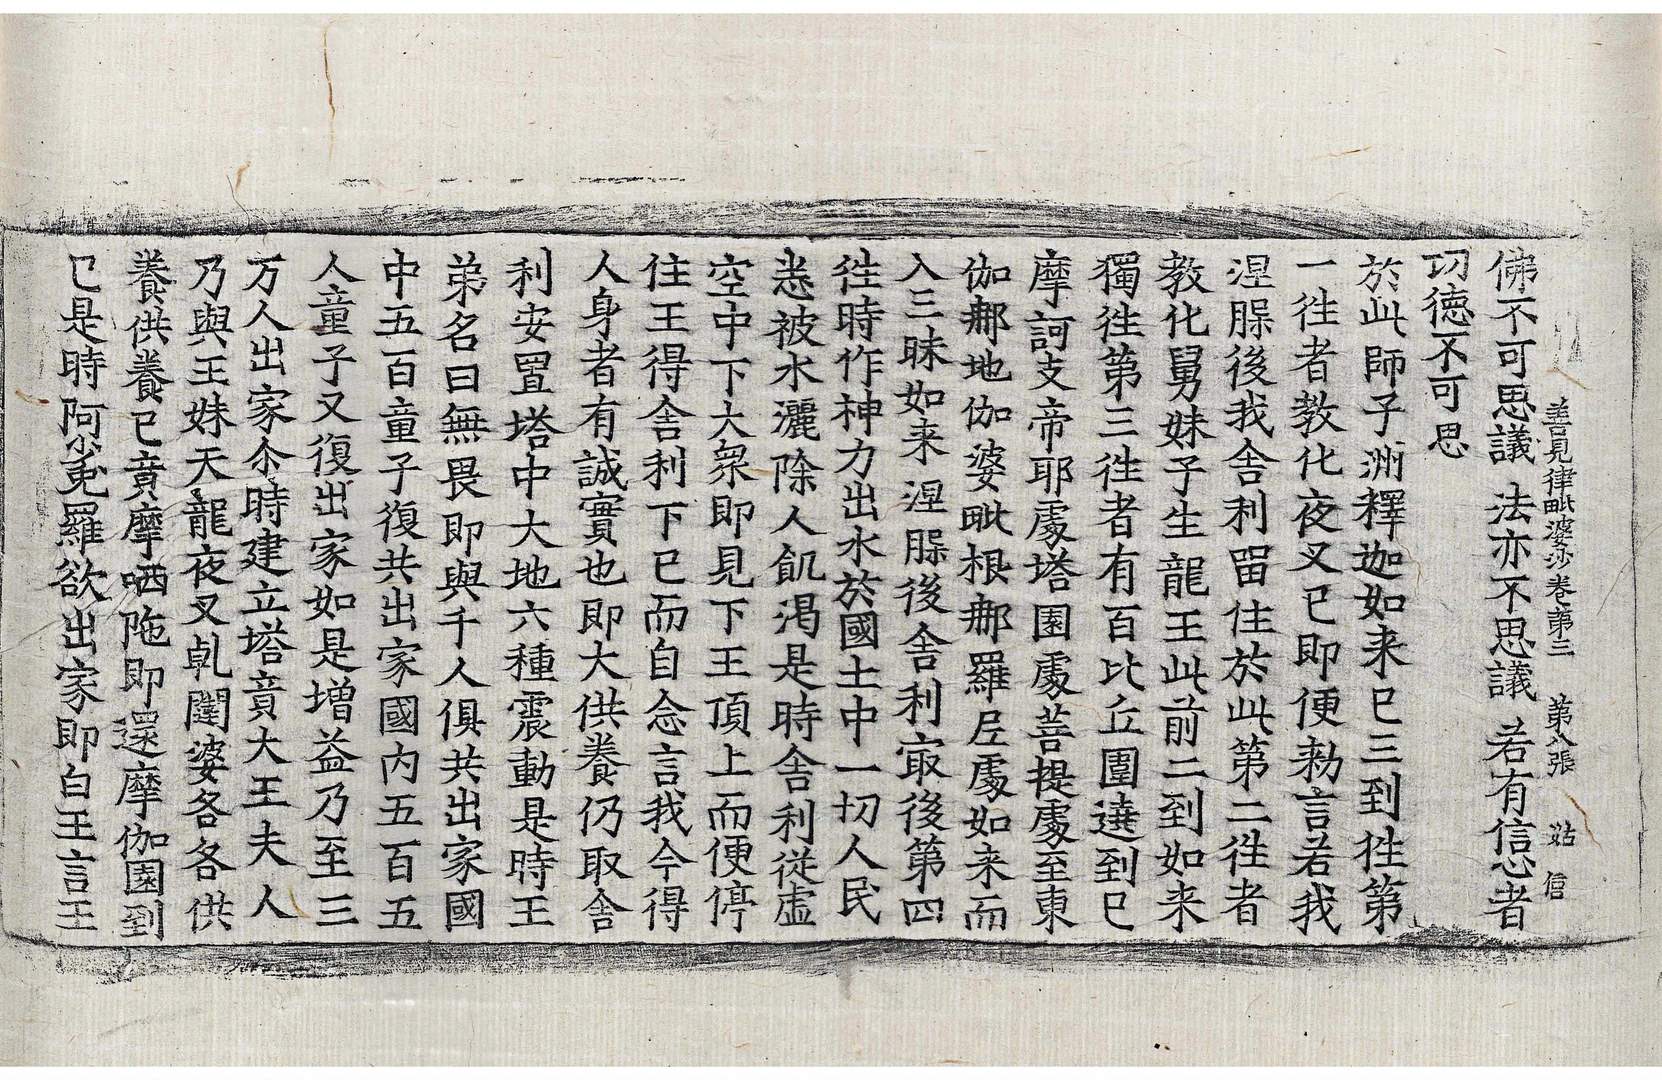 善見律毗婆沙卷第三 第八張 姑 信
佛不可思議 法亦不思議 若有信心者
切德不可思
於此師子洲釋迦如来已三到徃第
一徃者教化夜叉已即便勑言若我
涅䐓後我舍利留住於此第二徃者
教化舅妹子生龍王此前二到如来
獨徃第三徃者有百比丘圍遶到已
摩訶支帝耶處塔園處菩提處至東
伽那地伽婆毗根那羅𡰱處如来而
入三昧如来涅䐓後舍利㝡後第四
徃時作神力出水於國土中一切人民
悉被水灑除人飢渴是時舍利從虛
空中下大衆即見下王頂上而便停
住王得舍利下已而自念言我今得
人身者有誠實也即大供養仍取舍
利安置塔中大地六種震動是時王
弟名曰無畏即與千人俱共出家國
中五百童子復共出家國内五百五
人童子又復出家如是增益乃至三
万人出家尒時建立塔竟大王夫人
乃與王妹天龍夜叉乹闥婆各各供
養供養已竟摩哂陁即還摩伽園到
已是時阿㝹羅欲出家即白王言王